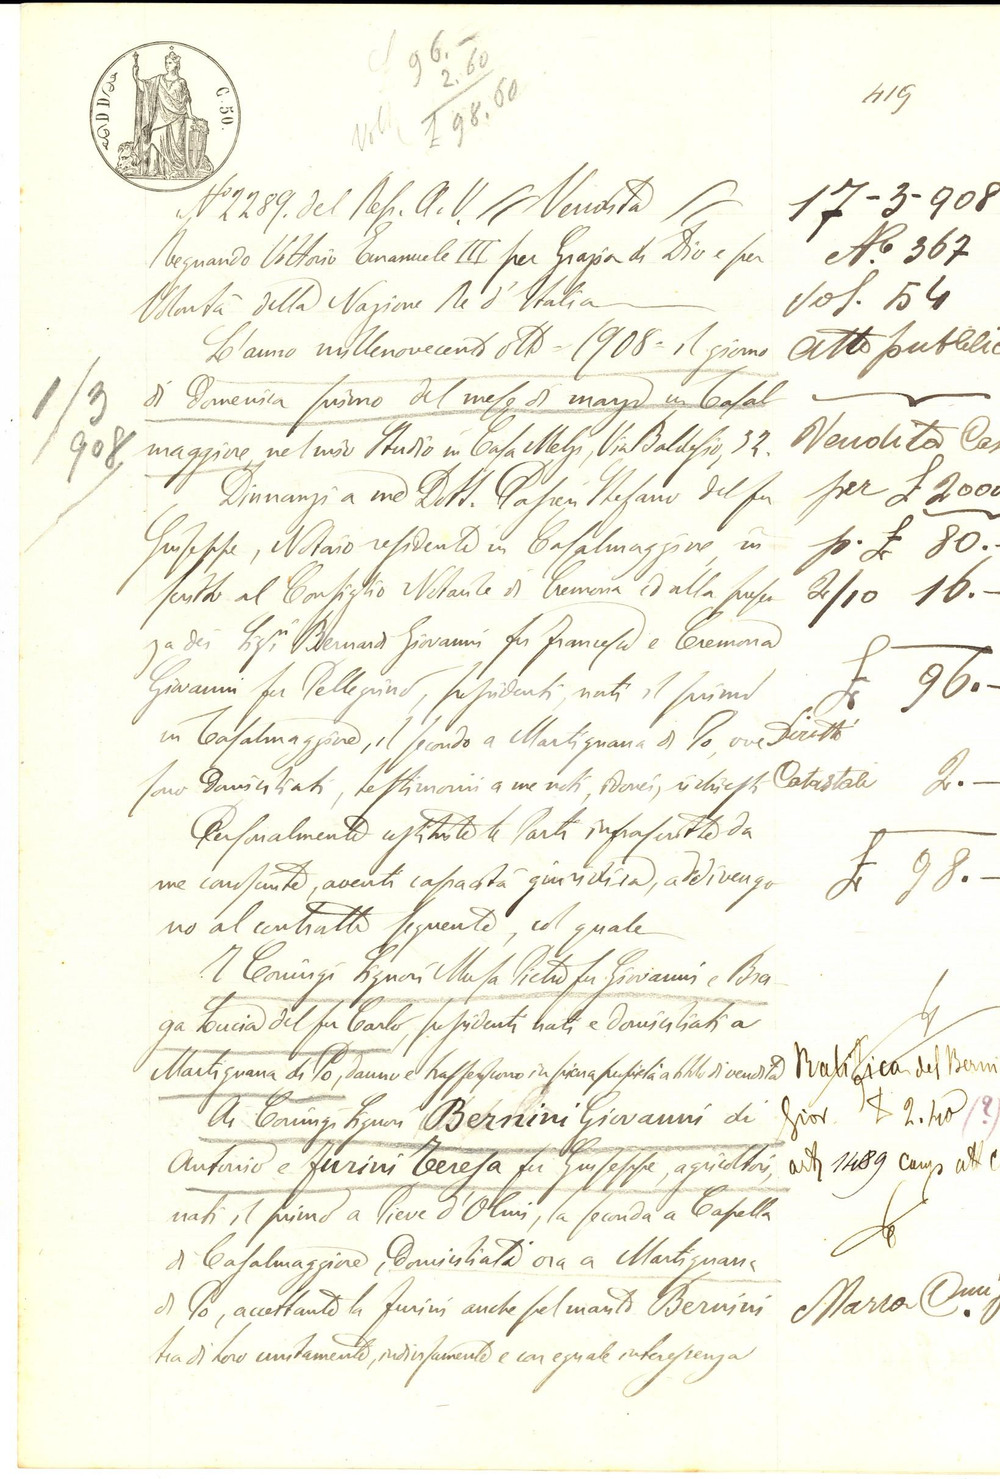 C. 50.
£ 96.-
2.60
£ 98.60
419
Nº 2289. del Rep. A. V. Vendita
Regnando Vittorio Emanuele III per Grazia di Dio e per
Volontà della Nazione Re d'Italia
L'anno millenovecento otto - 1908 - il giorno
di Domenica primo del mese di marzo in Casal
maggiore, nel mio Studio in Casa Melzi, Via Baldesio, 32.
Dinnanzi a me Dott. Stefano del fu
Giuseppe, Notaio residente in Casalmaggiore, in
scritto al Consiglio Notarile di Cremona ed alla presen
za dei Sigri Bernardi Giovanni fu Francesco e Cremona
Giovanni fu Pellegrino, possidenti, nati il primo
in Casalmaggiore, il secondo a Martignana di Po, ove
sono domiciliati, testimoni a me noti, idonei, richiesti
Personalmente costituite le Parti infrascritte da
me conosciute, aventi capacità giuridica, addivengo
no al contratto seguente, col quale
I Coniugi Signori Musa Pietro fu Giovanni e Bra-
ga Lucia del fu Carlo, possidenti nati e domiciliati a
Martignana di Po, danno e trasferiscono in piena proprietà a titolo di vendita
Ai Coniugi Signori Bernini Giovanni di
Antonio e Furini Teresa fu Giuseppe, agricoltori,
nati il primo a Pieve d'Olmi, la seconda a Cappella
di Casalmaggiore, domiciliati ora a Martignana
di Po, accettante la Furini anche pel marito Bernini
tra di loro unitamente, indivisamente e con eguale interessenza
1/3
908
17-3-908
Nº 367
Vol. 54
Atto pubblic
Vendita Cas
per £ 2000
p. £ 80.-
2/10 16.-
£ 96.-
Diritti
Catastali 2.-
£ 98.-
Ratifica del Bernini
Giov. £ 2.40 (?)
art 1489
Marzo